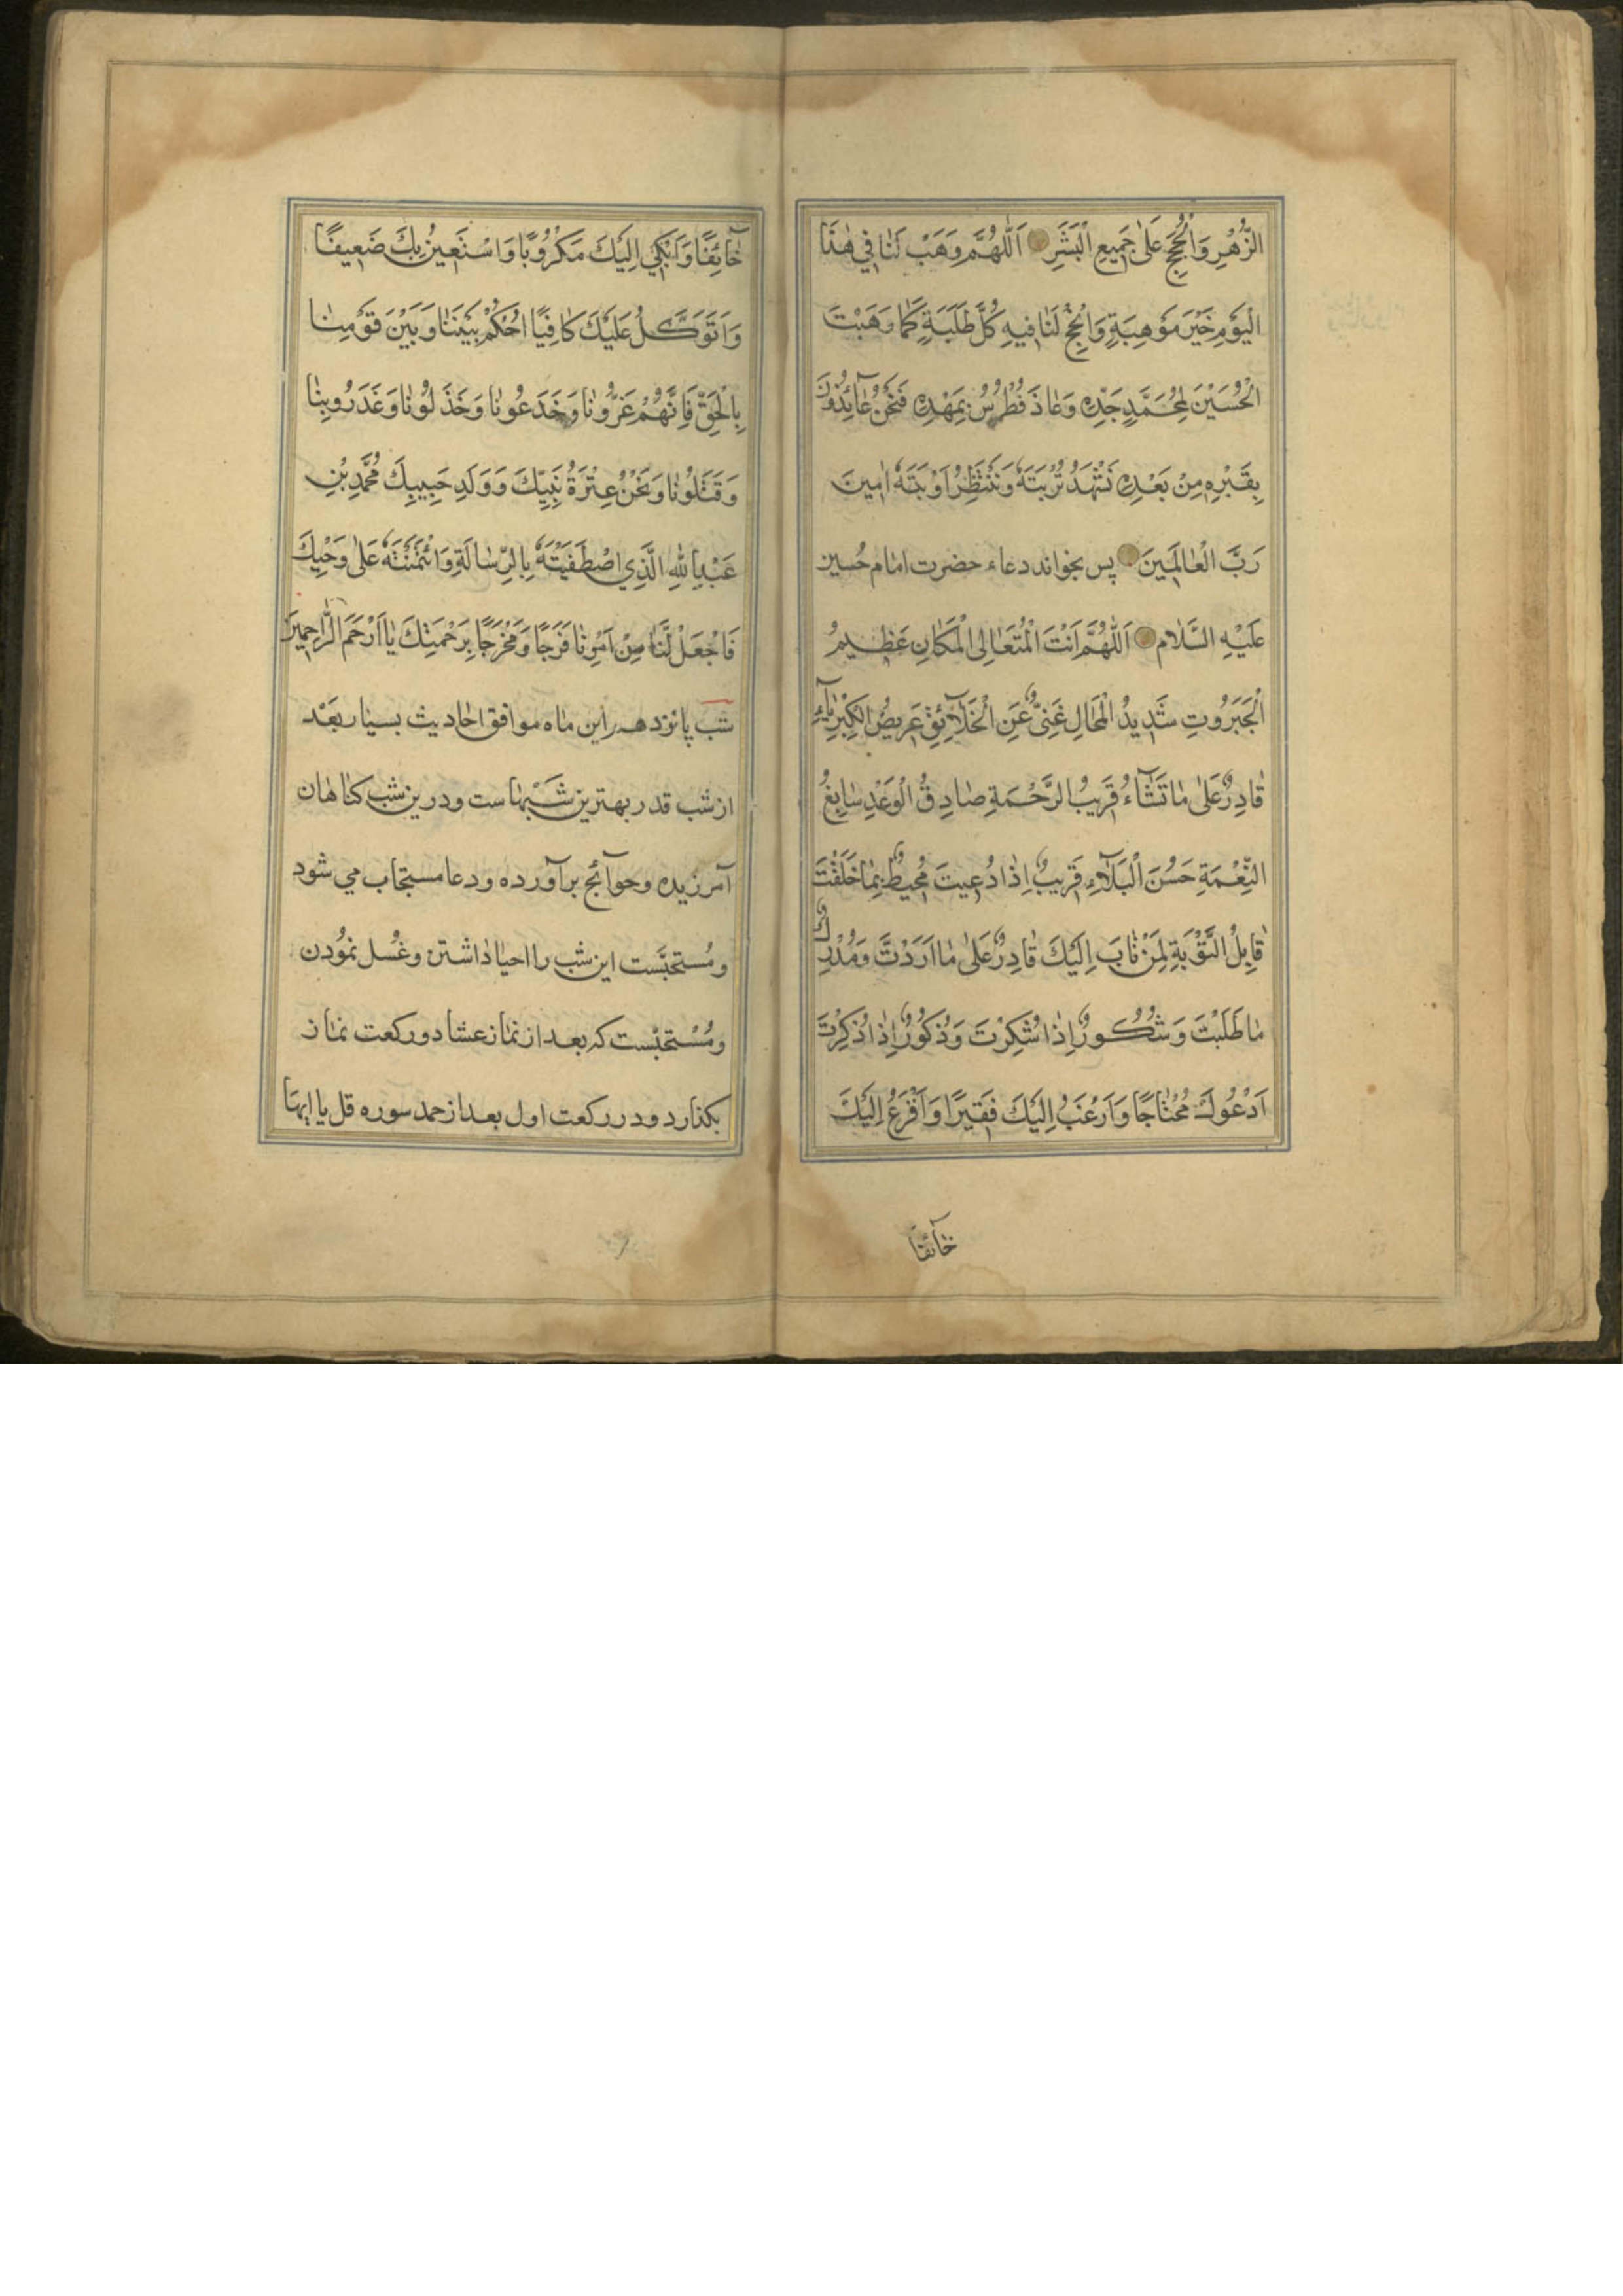 الزُّهْرِ وَالْحُجَجِ عَلىٰ جَمِيعِ الْبَشَرِ اَللّٰهُمَّ وَهَبْ لَنٰا فِي هٰذَا
الْيَوْمِ خَيْرَ مَوْهِبَةٍ وَاَنْجِحْ لَنٰا فِيهِ كُلَّ طَلَبَةٍ كَمٰا وَهَبْتَ
الْحُسَيْنَ لِمُحَمَّدٍ جَدِّهِ وَعٰاذَ فُطْرُسُ بِمَهْدِهِ فَنَحْنُ عٰآئِذُونَ
بِقَبْرِهِ مِنْ بَعْدِهِ نَشْهَدُ تُرْبَتَهُ وَنَنْتَظِرُ اَوْبَتَهُ اٰمِينَ
رَبَّ الْعٰالَمِينَ پس بخواند دعاء حضرت امٰام حُسين
عَلَيْهِ السَّلٰام اَللّٰهُمَّ اَنْتَ الْمُتَعٰالِى الْمَكٰانِ عَظِيمُ
الْجَبَرُوتِ شَدِيدُ الْمَحٰالِ غَنِىٌّ عَنِ الْخَلٰآئِقِ عَرِيضُ الْكِبْرِيٰآءِ
قٰادِرٌ عَلىٰ مٰا تَشٰآءُ قَرِيبُ الرَّحْمَةِ صٰادِقُ الْوَعْدِ سٰابِغُ
النِّعْمَةِ حَسَنُ الْبَلٰآءِ قَرِيبٌ اِذٰا دُعِيتَ مُحِيطٌ بِمٰا خَلَقْتَ
قٰابِلُ التَّوْبَةِ لِمَنْ تٰابَ اِلَيْكَ قٰادِرٌ عَلىٰ مٰا اَرَدْتَ وَمُدْرِكٌ
مٰا طَلَبْتَ وَشَكُورٌ اِذٰا شُكِرْتَ وَذَكُورٌ اِذٰا ذُكِرْتَ
اَدْعُوكَ مُحْتٰاجًا وَاَرْغَبُ اِلَيْكَ فَقِيرًا وَاَفْزَعُ اِلَيْكَ
خٰآئفًا
خٰآئِفًا وَاَبْكِي اِلَيْكَ مَكْرُوبًا وَاَسْتَعِينُ بِكَ ضَعِيفًا
وَاَتَوَكَّلُ عَلَيْكَ كٰافِيًا اُحْكُمْ بَيْنَنٰا وَبَيْنَ قَوْمِنٰا
بِالْحَقِّ فَاِنَّهُمْ غَرُّونٰا وَخَدَعُونٰا وَخَذَلُونٰا وَغَدَرُوبِنٰا
وَقَتَلُونٰا وَنَحْنُ عِتْرَةُ نَبِيِّكَ وَوَلَدِ حَبِيبِكَ مُحَمَّدِ بْنِ
عَبْدِ اللّٰهِ الَّذِي اصْطَفَيْتَهُ بِالرِّسٰالَةِ وَائْتَمَنْتَهُ عَلىٰ وَحْيِكَ
فَاجْعَلْ لَنٰا مِنْ اَمْرِنٰا فَرَجًا وَمَخْرَجًا بِرَحْمَتِكَ يٰا اَرْحَمَ الرّٰاحِمِينَ
شب پٰانزدهم اين مٰاه موافق احٰاديث بسيٰار بَعْد
از شب قدر بهترين شَبْهٰاست ودرين شب كنٰاهٰان
آمرزيده وحوآئج برآورده ودعا مستجٰاب مي شود
ومُستحبّست اين شب را احيٰا دٰاشتن وغُسل نمُودن
ومُسْتحبّست كه بعد از نمٰاز عشٰا دو ركعت نمٰاز
بكذارد ودر ركعت اول بعد از حمد سوره قل يٰا ايهٰا